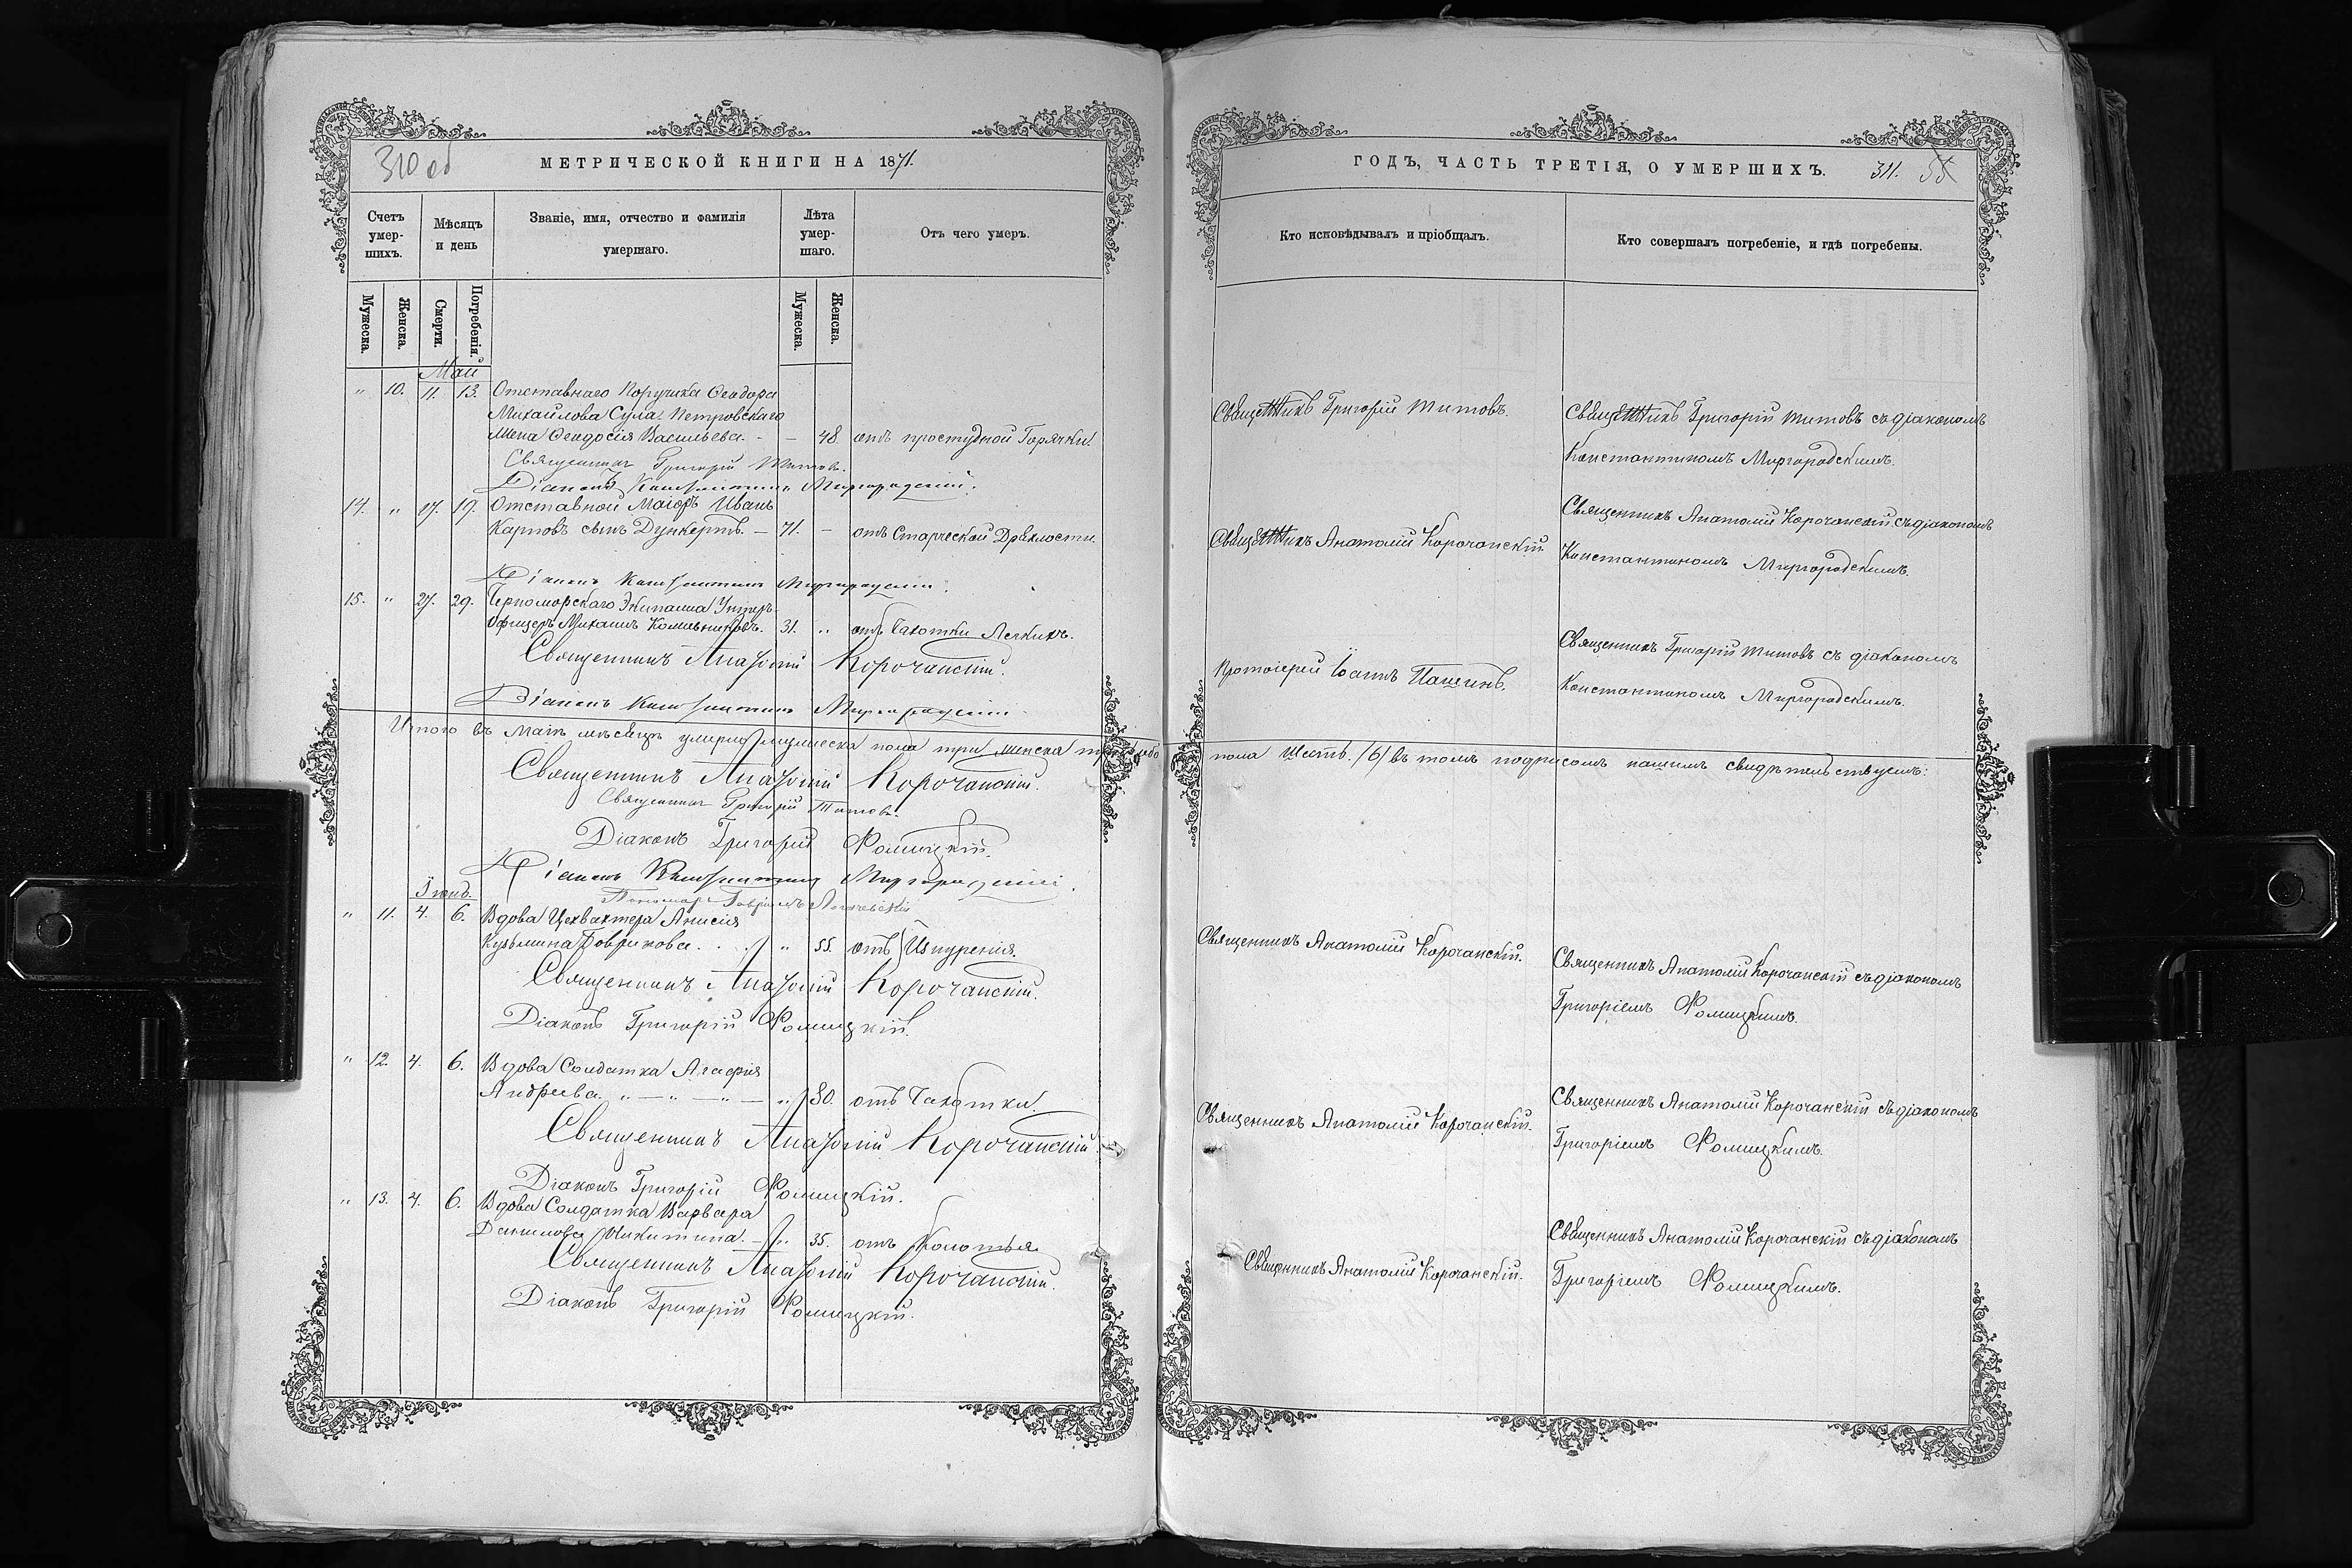 310 об
МЕТРИЧЕСКОЙ КНИГИ НА 1871.
Счетъ умер-шихъ.
Мѣсяцъ и день
Званіе, имя, отчество и фамилія умершаго.
Лѣта умер-шаго.
Отъ чего умеръ.
Мужеска.
Женска.
Смерти.
Погребенія.
Мужеска.
Женска.
Май
" 10. 11. 13. Отставнаго Поручика Ѳеодора
Михайлова Сула-Петровскаго
Жена Ѳеодосія Васильева. - — 48. отъ простудной Горячки.
Священникъ Григорій Титовъ.
Діаконъ Константинъ Миргородскій.
14. " 17. 19. Отставной Маіоръ Иванъ
Карповъ сынъ Дункертъ. — 71. — отъ Старческой Дряхлости.
Діаконъ Константинъ Миргородскій.
15. " 27. 29. Черноморскаго Экипажа Унтеръ-
Офицеръ Михаилъ 31. " отъ Чахотки Легкихъ.
Священникъ Анатолій Корочанскій.
Діаконъ Константинъ Миргородскій
Итого въ Маѣ мѣсяцѣ умерло мужеска пола три женска три обо
Священникъ Анатолій Корочанскій.
Священникъ Григорій Титовъ.
Діаконъ Григорій Ѳомицкій.
Діаконъ Константинъ Миргородскій.
Пономарь Гавріилъ
Іюнь.
" 11. 4. 6. Вдова Цехвахтера Анисія
Кузьмина Говрикова. " 55. отъ Изнуренія.
Священникъ Анатолій Корочанскій.
Діаконъ Григорій Ѳомицкій.
" 12. 4. 6. Вдова Солдатка Агафія
Андреева. " — " — " — " 80. отъ Чахотки.
Священникъ Анатолій Корочанскій.
Діаконъ Григорій Ѳомицкій.
" 13. 4. 6. Вдова Солдатка Варвара
Данилова Никитина. — " 35. отъ Колотья
Священникъ Анатолій Корочанскій.
Діаконъ Григорій Ѳомицкій.
ГОДЪ, ЧАСТЬ ТРЕТІЯ, О УМЕРШИХЪ.
311. 55
Кто исповѣдывалъ и пріобщалъ.
Кто совершалъ погребеніе, и гдѣ погребены.
Священникъ Григорій Титовъ.
Священникъ Григорій Титовъ съ діакономъ
Константиномъ Миргородскимъ.
Священникъ Анатолій Корочанскій.
Священникъ Анатолій Корочанскій съ діакономъ
Константиномъ Миргородскимъ.
Протоіерей Іоаннъ Пашинъ.
Священникъ Григорій Титовъ съ діакономъ
Константиномъ Миргородскимъ.
пола Шесть. (6) въ томъ подписомъ нашимъ свидѣтельствуемъ:
Священникъ Анатолій Корочанскій.
Священникъ Анатолій Корочанскій съ діакономъ
Григоріемъ Ѳомицкимъ.
Священникъ Анатолій Корочанскій.
Священникъ Анатолій Корочанскій съ діакономъ
Григоріемъ Ѳомицкимъ.
Священникъ Анатолій Корочанскій.
Священникъ Анатолій Корочанскій съ діакономъ
Григоріемъ Ѳомицкимъ.